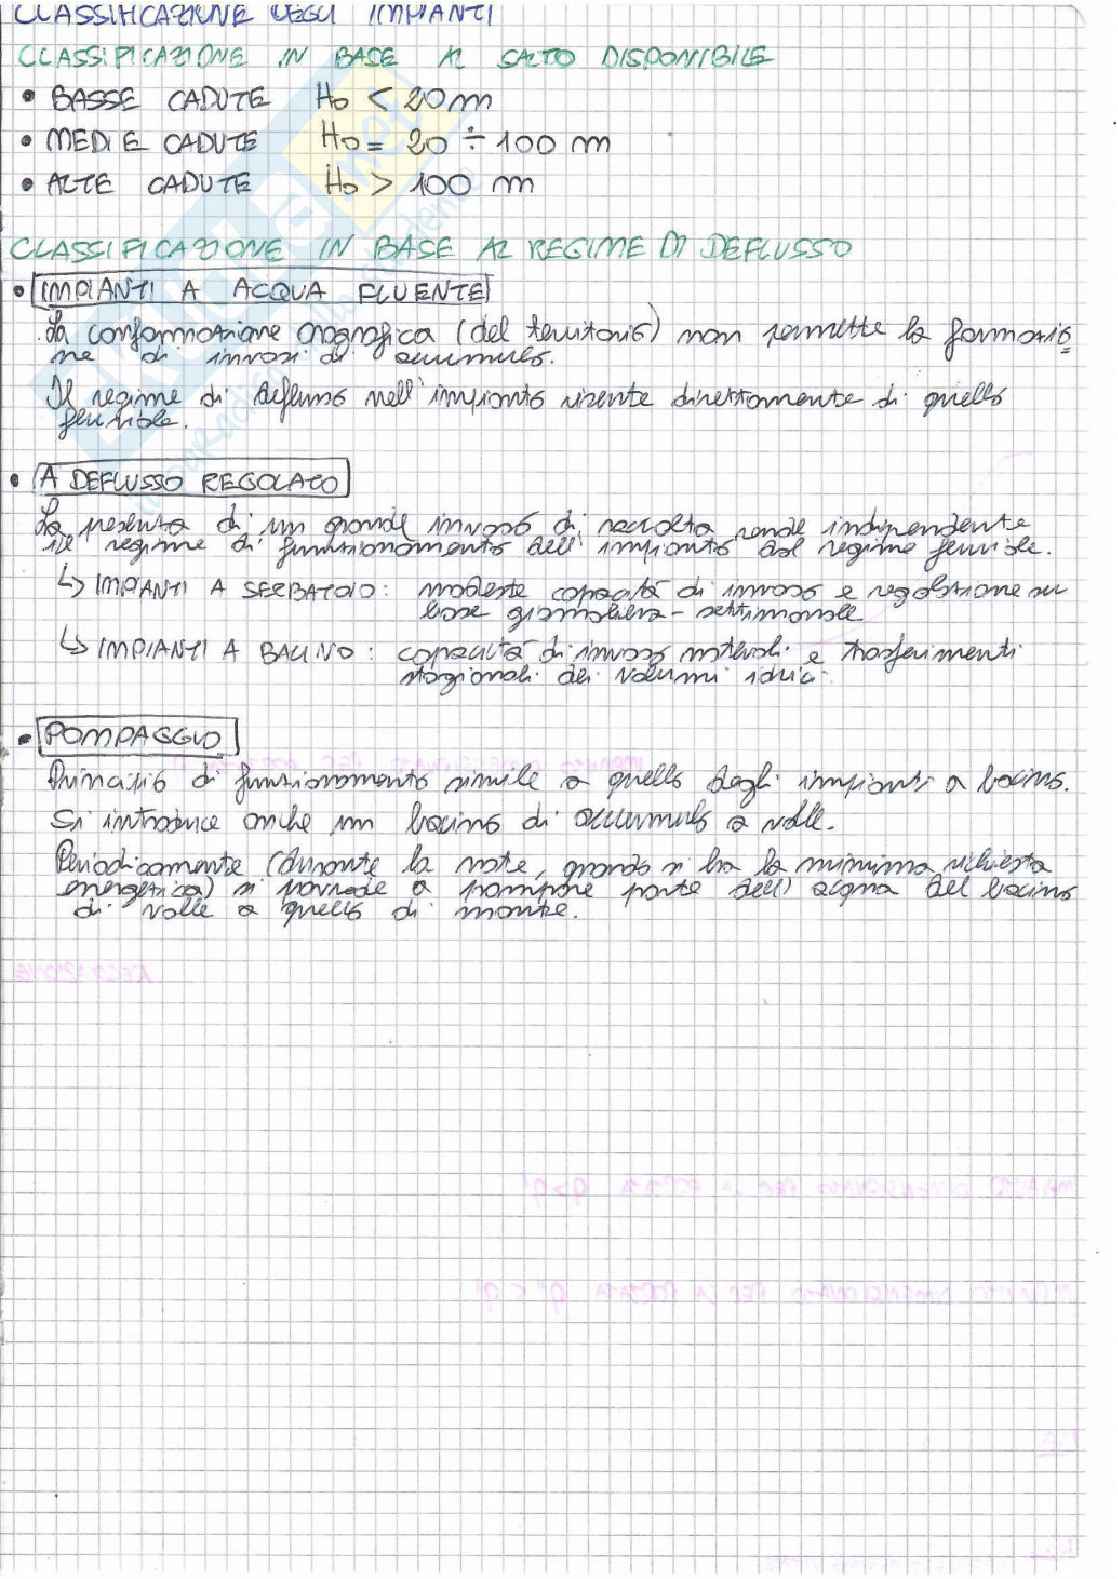 CLASSIFICAZIONE DEGLI IMPIANTI
CLASSIFICAZIONE IN BASE AL SALTO DISPONIBILE
• BASSE CADUTE Ho < 20 m
• MEDIE CADUTE Ho = 20 ÷ 100 m
• ALTE CADUTE Ho > 100 m
CLASSIFICAZIONE IN BASE AL REGIME DI DEFLUSSO
• IMPIANTI A ACQUA FLUENTE
La conformazione orografica (del territorio) non permette la formazio
ne di invasi di accumulo.
Il regime di deflusso nell'impianto risente direttamente di quello
fluviale.
• A DEFLUSSO REGOLATO
La presenza di un grande invaso di raccolta rende indipendente
il regime di funzionamento dell'impianto dal regime fluviale.
↳ IMPIANTI A SERBATOIO: modeste capacità di invaso e regolazione su
base giornaliera - settimanale
↳ IMPIANTI A BACINO: capacità di invaso notevoli e trasferimenti
stagionali dei volumi idrici
• POMPAGGIO
Principio di funzionamento simile a quello degli impianti a bacino.
Si introduce anche un bacino di accumulo a valle.
Periodicamente (durante la notte, quando si ha la minima richiesta
energetica) si provvede a pompare parte dell'acqua del bacino
di valle a quello di monte.